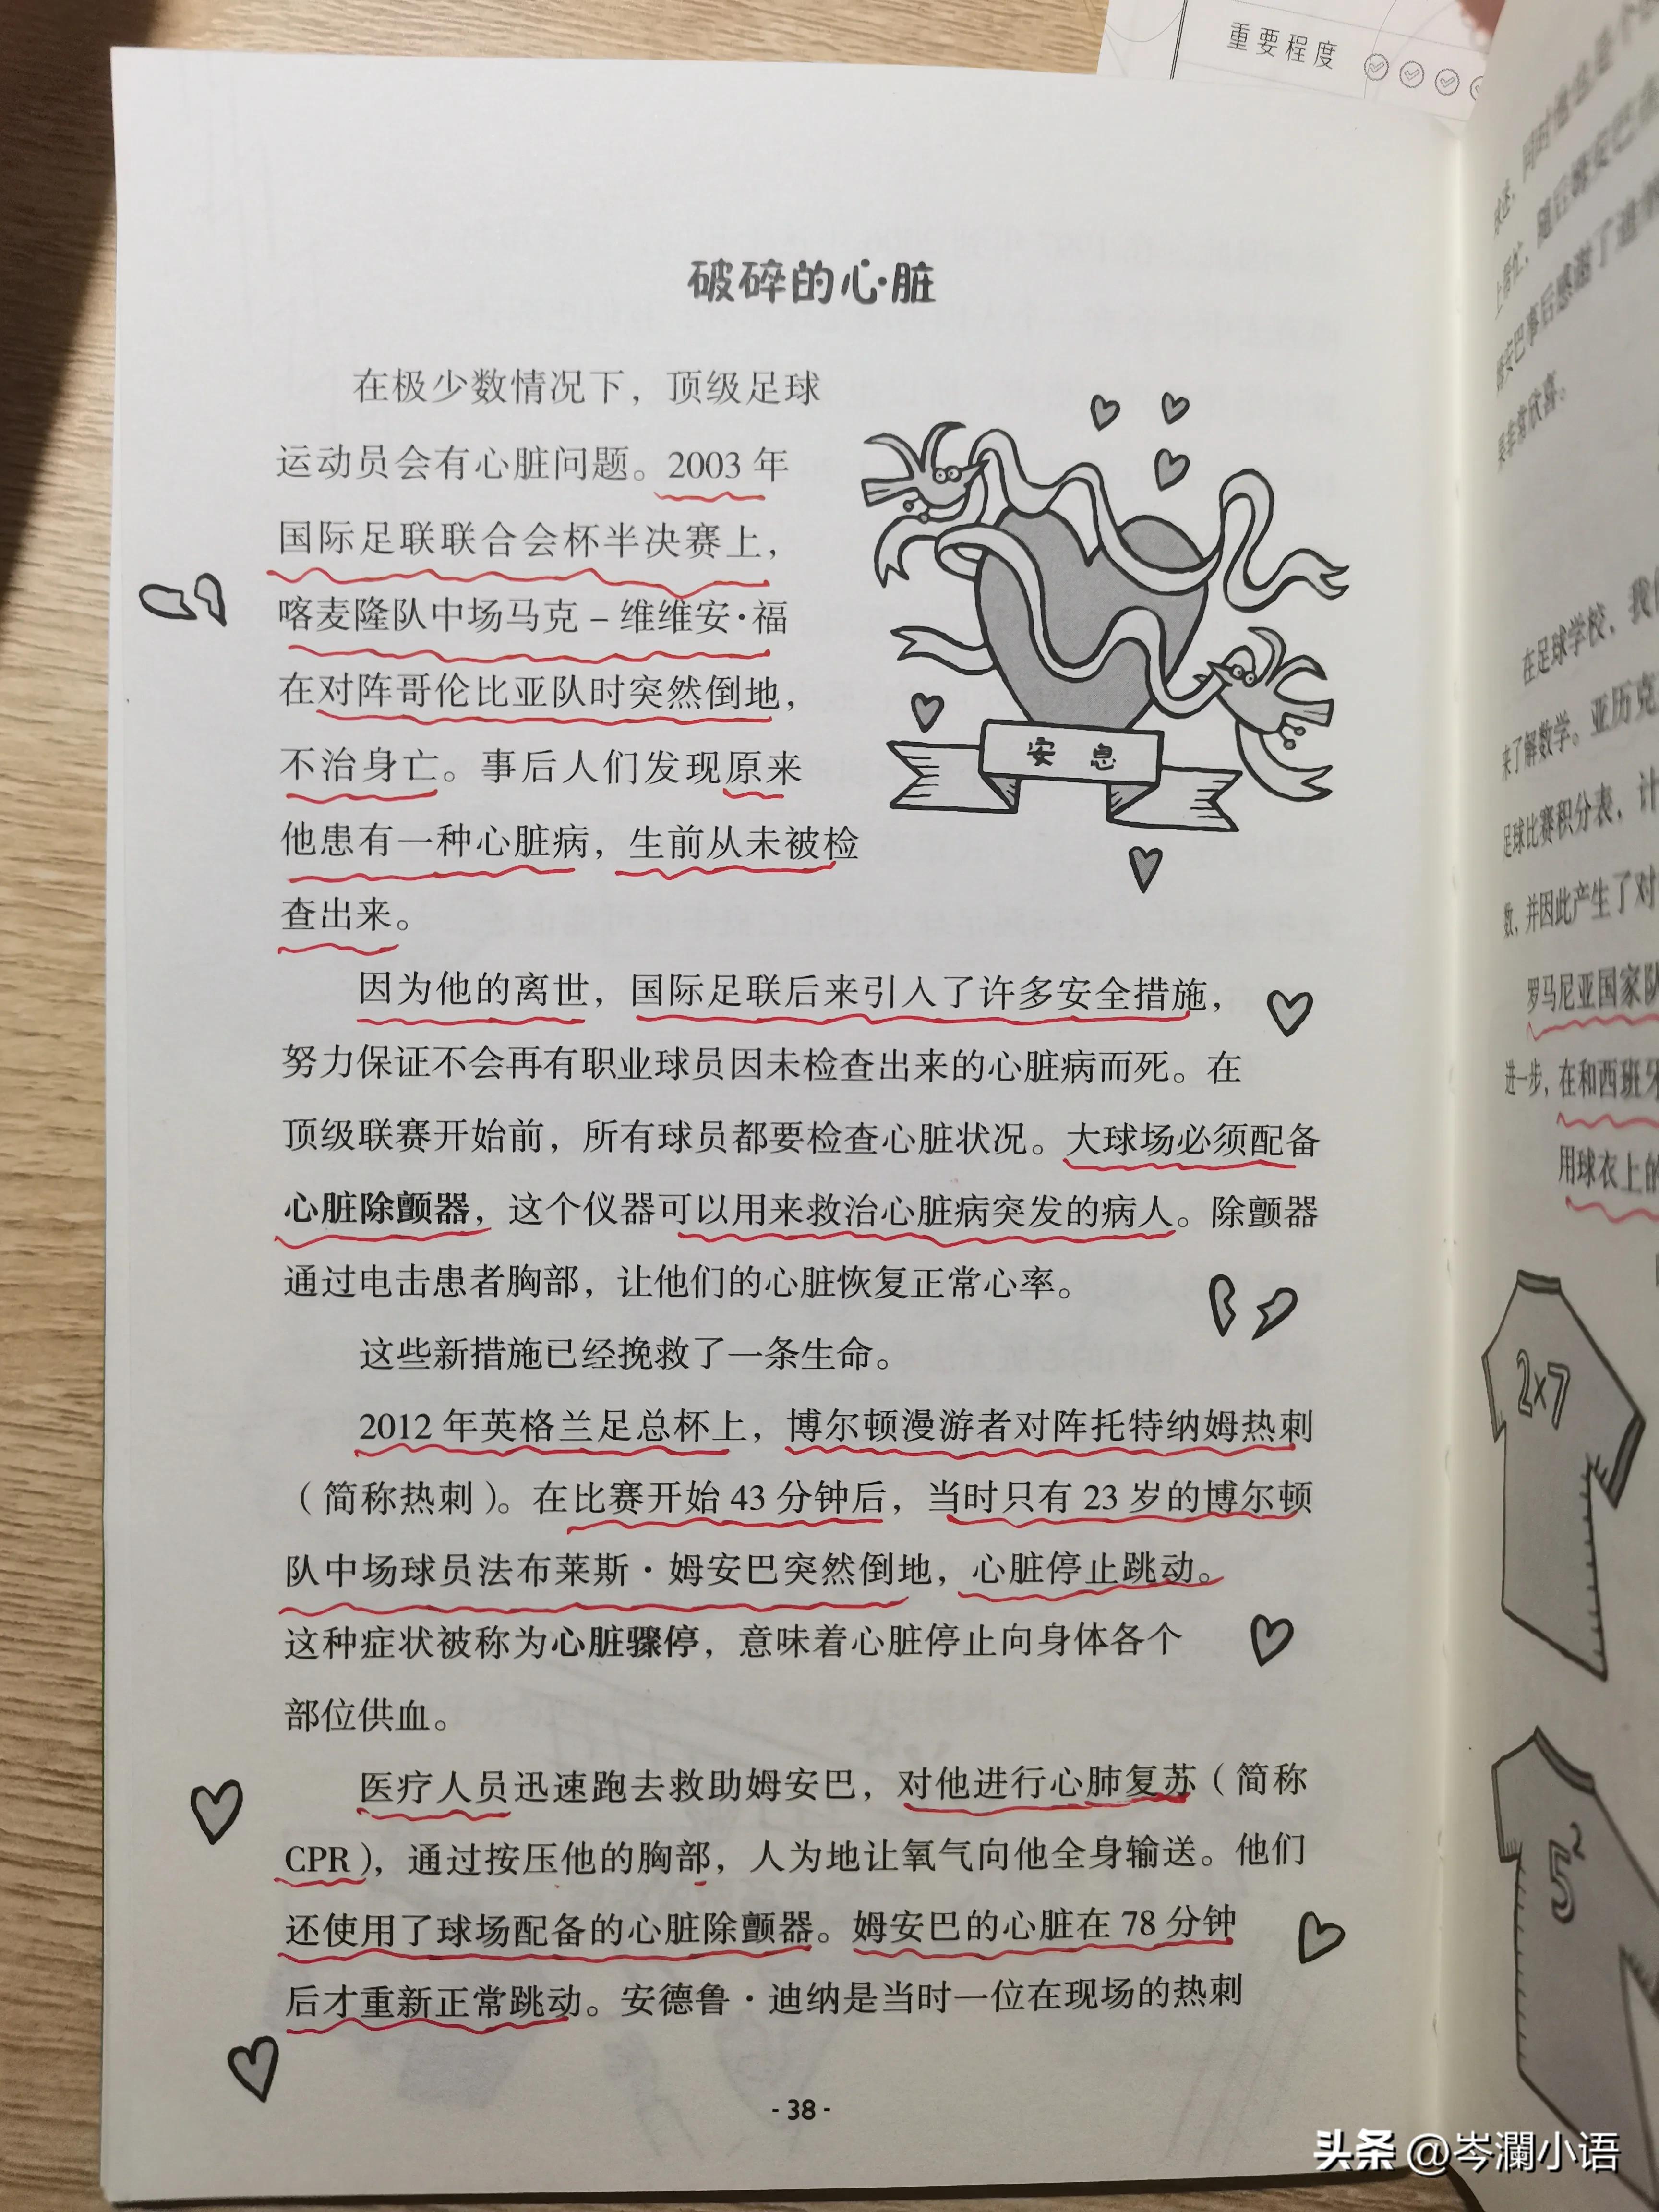 重要程度
破碎的心脏
在极少数情况下，顶级足球
运动员会有心脏问题。2003年
国际足联联合会杯半决赛上，
喀麦隆队中场马克-维维安·福
在对阵哥伦比亚队时突然倒地，
不治身亡。事后人们发现原来
他患有一种心脏病，生前从未被检
查出来。
安息
因为他的离世，国际足联后来引入了许多安全措施，
努力保证不会再有职业球员因未检查出来的心脏病而死。在
顶级联赛开始前，所有球员都要检查心脏状况。大球场必须配备
心脏除颤器，这个仪器可以用来救治心脏病突发的病人。除颤器
通过电击患者胸部，让他们的心脏恢复正常心率。
这些新措施已经挽救了一条生命。
2012年英格兰足总杯上，博尔顿漫游者对阵托特纳姆热刺
（简称热刺）。在比赛开始43分钟后，当时只有23岁的博尔顿
队中场球员法布莱斯·姆安巴突然倒地，心脏停止跳动。
这种症状被称为心脏骤停，意味着心脏停止向身体各个
部位供血。
医疗人员迅速跑去救助姆安巴，对他进行心肺复苏（简称
CPR），通过按压他的胸部，人为地让氧气向他全身输送。他们
还使用了球场配备的心脏除颤器。姆安巴的心脏在78分钟
后才重新正常跳动。安德鲁·迪纳是当时一位在现场的热刺
-38-
安巴事后感谢了
果非常欣喜。
在足球学校，我
来了解数学。亚历克
足球比赛积分表，计
数，并因此产生了对
罗马尼亚国家队
进一步，在和西班牙
用球衣上的
2×7
5²
头条 @岑瀾小语